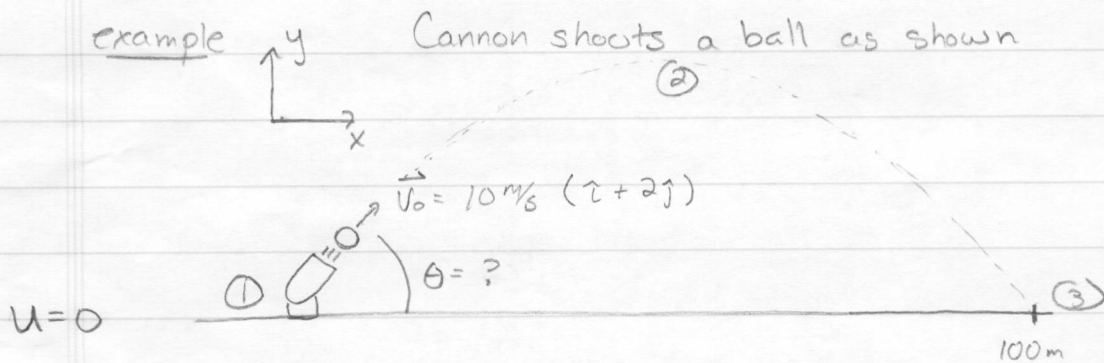 example y Cannon shoots a ball as shown
②
x
V⃗₀ = 10 m/s (î + 2ĵ)
① θ = ?
U = 0 ③
100m